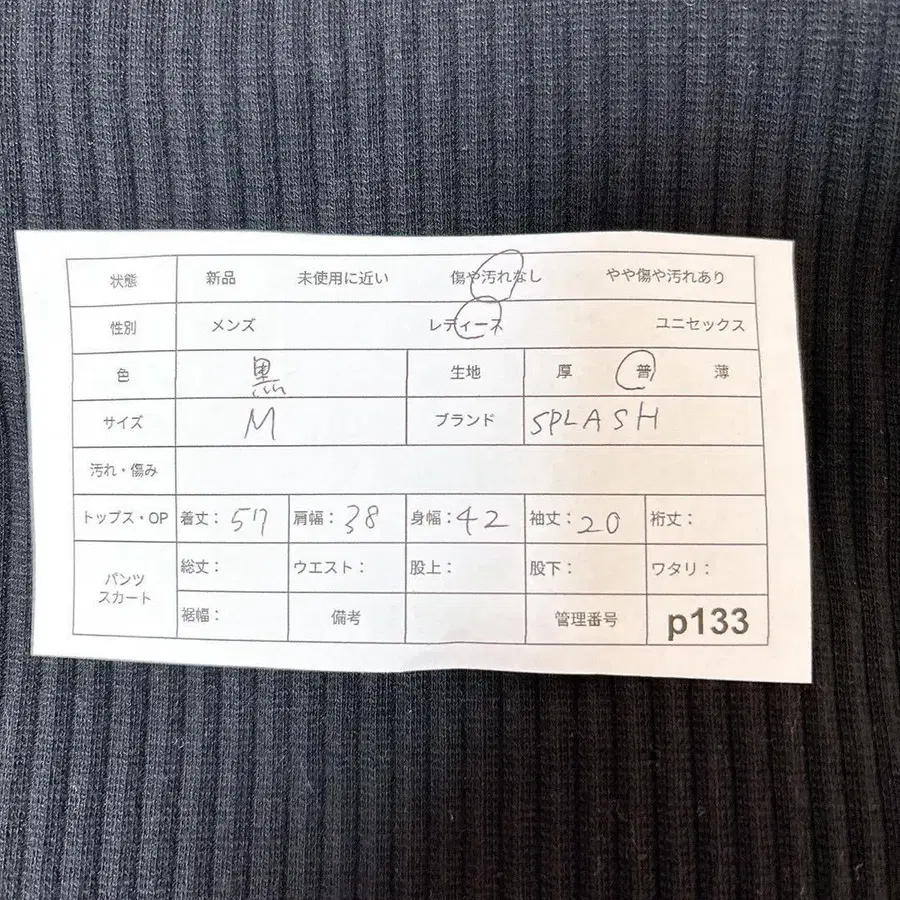 状態 新品 未使用に近い 傷や汚れなし やや傷や汚れあり
性別 メンズ レディース ユニセックス
色 黒 生地 厚 普 薄
サイズ M ブランド SPLASH
汚れ・傷み
トップス・OP 着丈: 57 肩幅: 38 身幅: 42 袖丈: 20 裄丈:
パンツ スカート 総丈: ウエスト: 股上: 股下: ワタリ:
裾幅: 備考 管理番号 p133